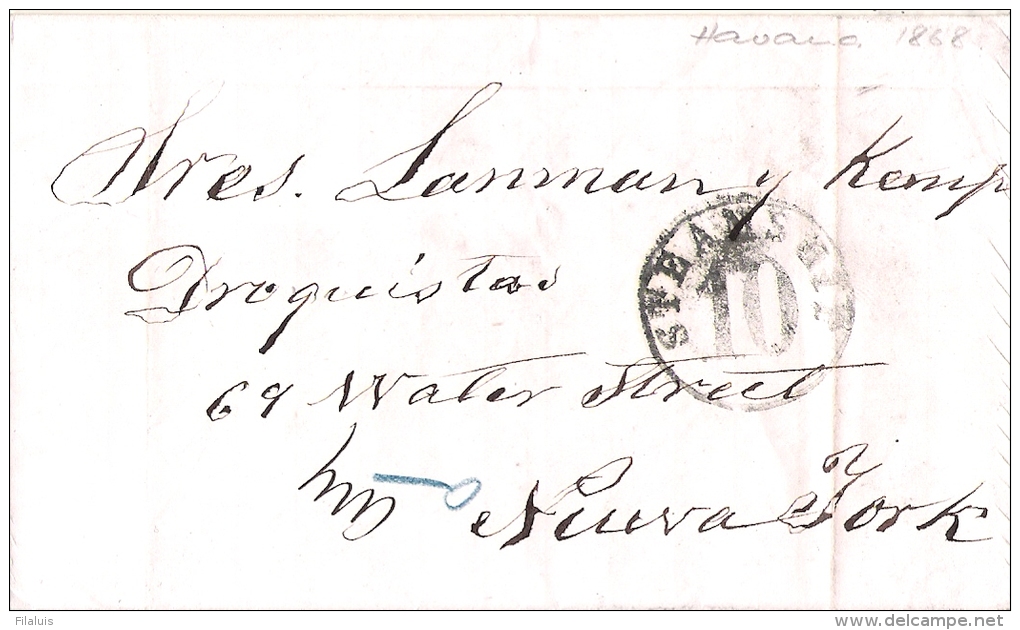 Havana 1868
Sres. Lanman y Kemp
STEAMSHIP
10
Droguistas
69 Water Street
Nueva York
Filaluis
www.delcampe.net